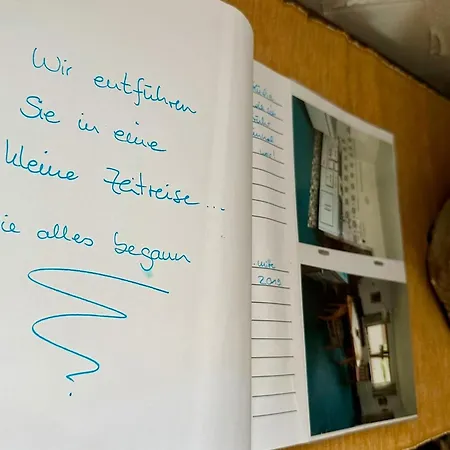 Wir entführen
Sie in eine
kleine Zeitreise...
ie alles begann
mitte
2015